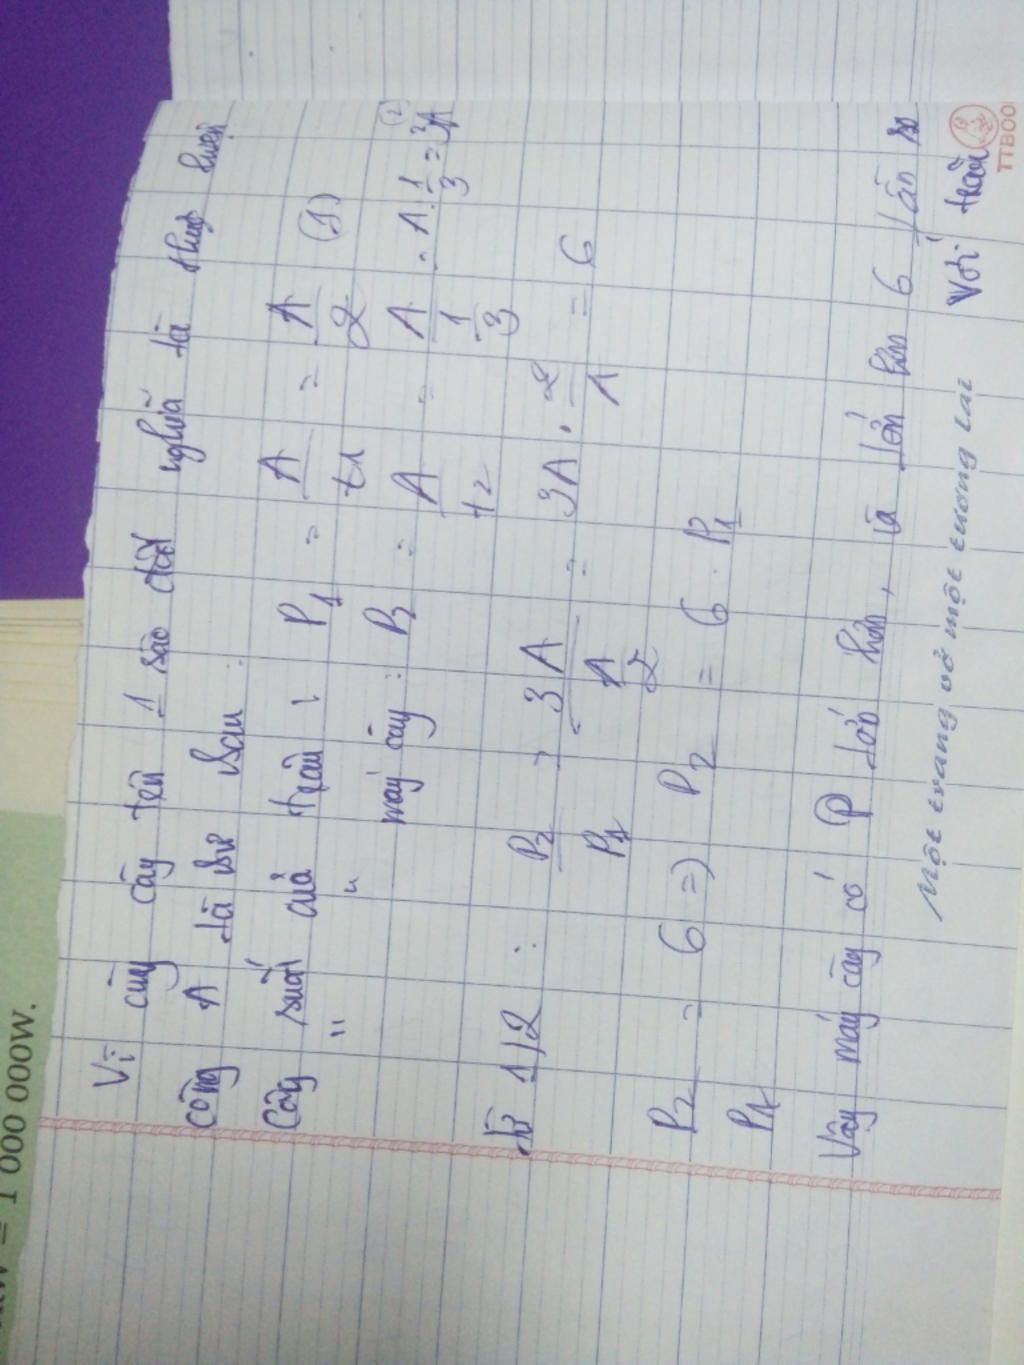 Vì cùng cày trên 1 sào đất nghĩa là thực hiện
công A là như sau :
Công suất của trâu : P1 = A/t1 = A/2 (1)
" " máy cày : P2 = A/t2 = A/(1/3) = A : 1/3 = 3A (2)
Từ 1,2 : P2/P1 = 3A/(A/2) = 3A . 2/A = 6
P2/P1 = 6 => P2 = 6 . P1
Vậy máy cày có P lớn hơn, và lớn hơn 6 lần so
với trâu
Một trang vở một tương lai
TTBOO
= 1 000 000W.